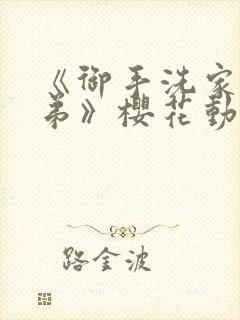 《御手洗家
弟》櫻花動
路金波